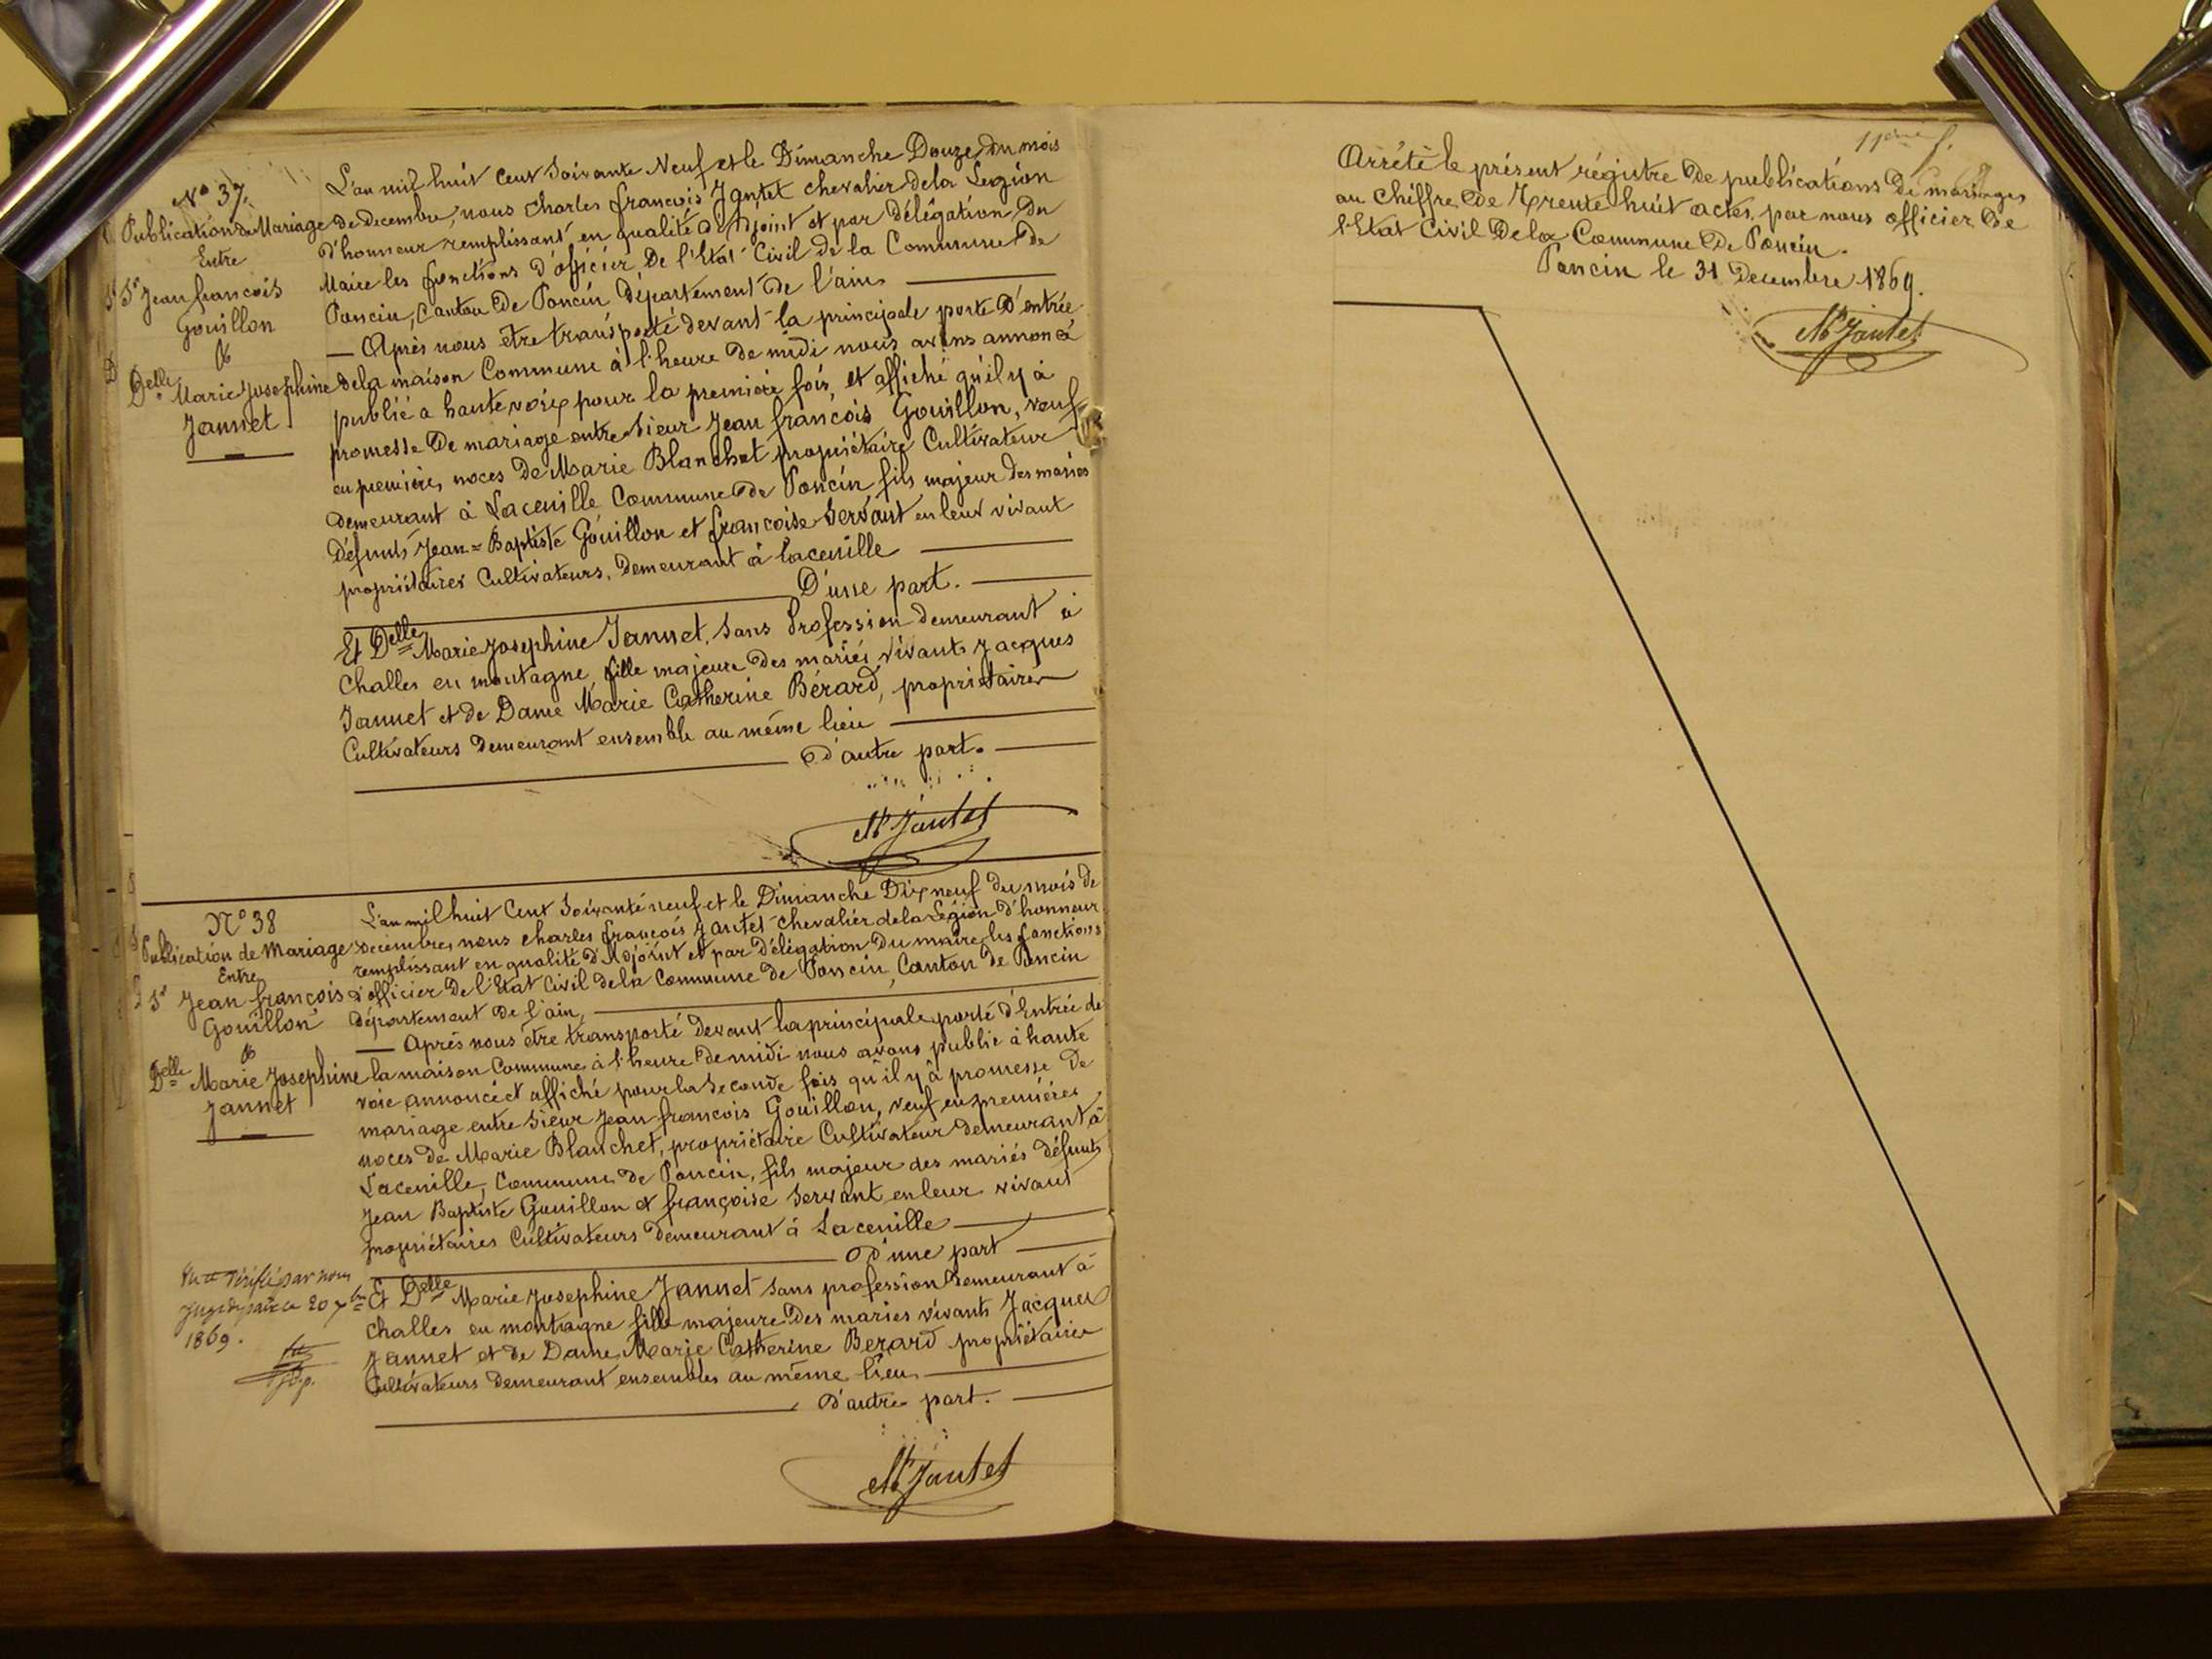 N° 37.
Publication de Mariage
Entre
Sr Jean françois
Gouillon
&
Delle Marie Josephine
Jannet
L'an mil huit Cent Soixante Neuf et le Dimanche Douze du mois
de Decembre, nous Charles françois Jantet chevalier de la Legion
d'honneur remplissant en qualité d'Adjoint et par Délégation du
Maire les fonctions d'officier De l'Etat Civil de la Commune de
Poncin, Canton De Poncin Département De l'ain.
— Après nous être transporté devant la principale porte D'entrée
de la maison Commune à l'heure De midi nous avons annoncé
publié a haute voix pour la première fois, et affiché qu'il y à
promesse De mariage entre Sieur Jean françois Gouillon, veuf
en premières noces De Marie Blanchet propriétaire Cultivateur
demeurant à Lacenille Commune de Poncin fils majeur Des mariés
Défunts Jean=Baptiste Gouillon et françoise Servant en leur vivant
propriétaires Cultivateurs, Demeurant à Lacenille
D'une part.
Et Delle Marie Josephine Jannet, Sans Profession demeurant à
Challes en montagne, fille majeure Des mariés vivants Jacques
Jannet et de Dame Marie Catherine Bérard, propriétaires
Cultivateurs Demeurant ensemble au même lieu
D'autre part.
Jantet
N° 38
Publication de Mariage
Entre
Sr Jean françois
Gouillon
&
Delle Marie Josephine
Jannet
L'an mil huit Cent Soixante neuf et le Dimanche Dix neuf du mois de
Decembre, nous Charles françois Jantet chevalier de la Légion d'honneur
remplissant en qualité d'Adjoint et par Délégation Du maire les fonctions
d'officier De l'Etat Civil de la Commune De Poncin, Canton de Poncin
département De l'ain,
— Après nous être transporté Devant la principale porte d'Entrée de
la maison Commune à l'heure De midi nous avons publié à haute
voie annoncé et affiché pour la Seconde fois qu'il y à promesse De
mariage entre Sieur Jean françois Gouillon, veuf en premières
noces de Marie Blanchet, propriétaire Cultivateur Demeurant à
Lacenille, Commune de Poncin, fils majeur des mariés défunts
Jean Baptiste Gouillon & françoise Servant, en leur vivant
propriétaires Cultivateurs Demeurant à Lacenille
D'une part
Et Delle Marie Josephine Jannet Sans profession Demeurant à
Challes en montagne fille majeure Des mariés vivants Jacques
Jannet et de Dame Marie Catherine Berard propriétaires
Cultivateurs demeurant ensembles au même lieu
D'autre part.
vérifié par nous
Juge de paix ce 20 xbre
1869.
Jantet
11ème f.
Arrêté le présent régistre De publications De mariages
au Chiffre De Trente huit actes, par nous officier De
l'Etat Civil De la Commune De Poncin.
Poncin le 31 Decembre 1869.
Jantet